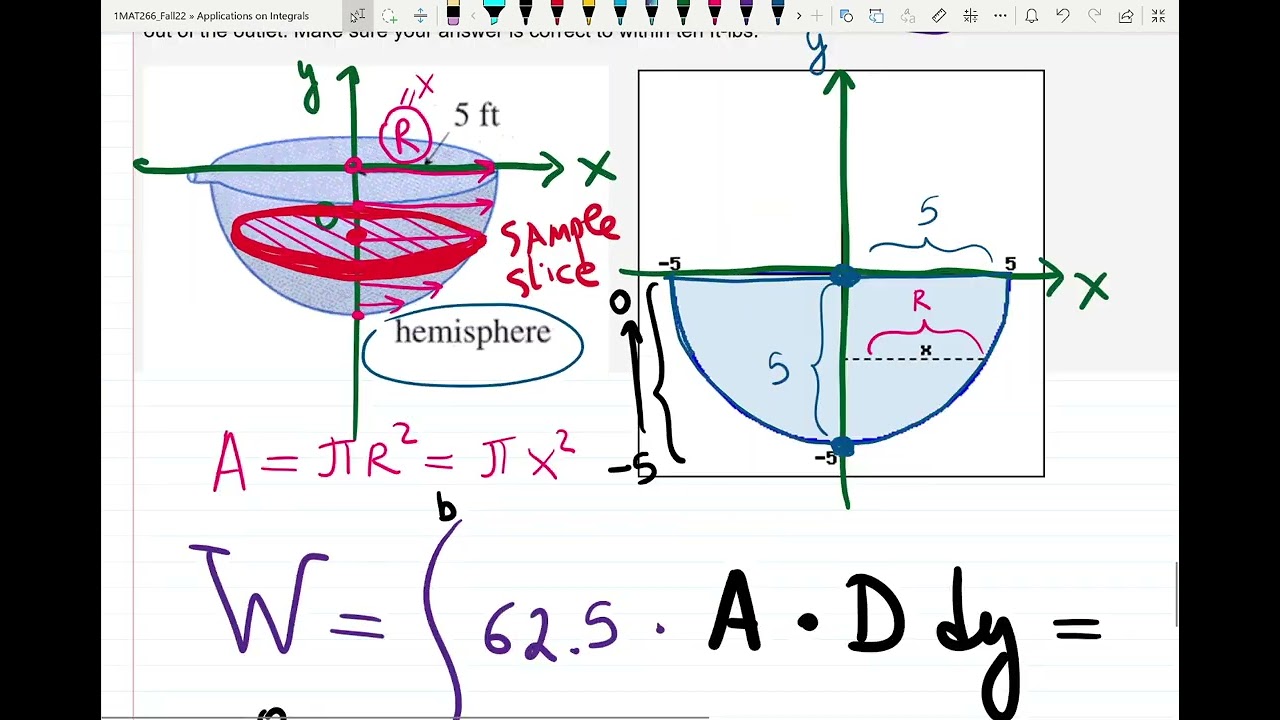 1MAT266_Fall22 » Applications on Integrals
out of the outlet. Make sure your answer is correct to within ten ft-lbs.
y
y
x
=
R
5 ft
x
5
-5
5
x
0
SAMPLE
slice
0
R
x
5
hemisphere
-5
-5
A = πR² = πx²
b
W = ∫ 62.5 · A · D dy =